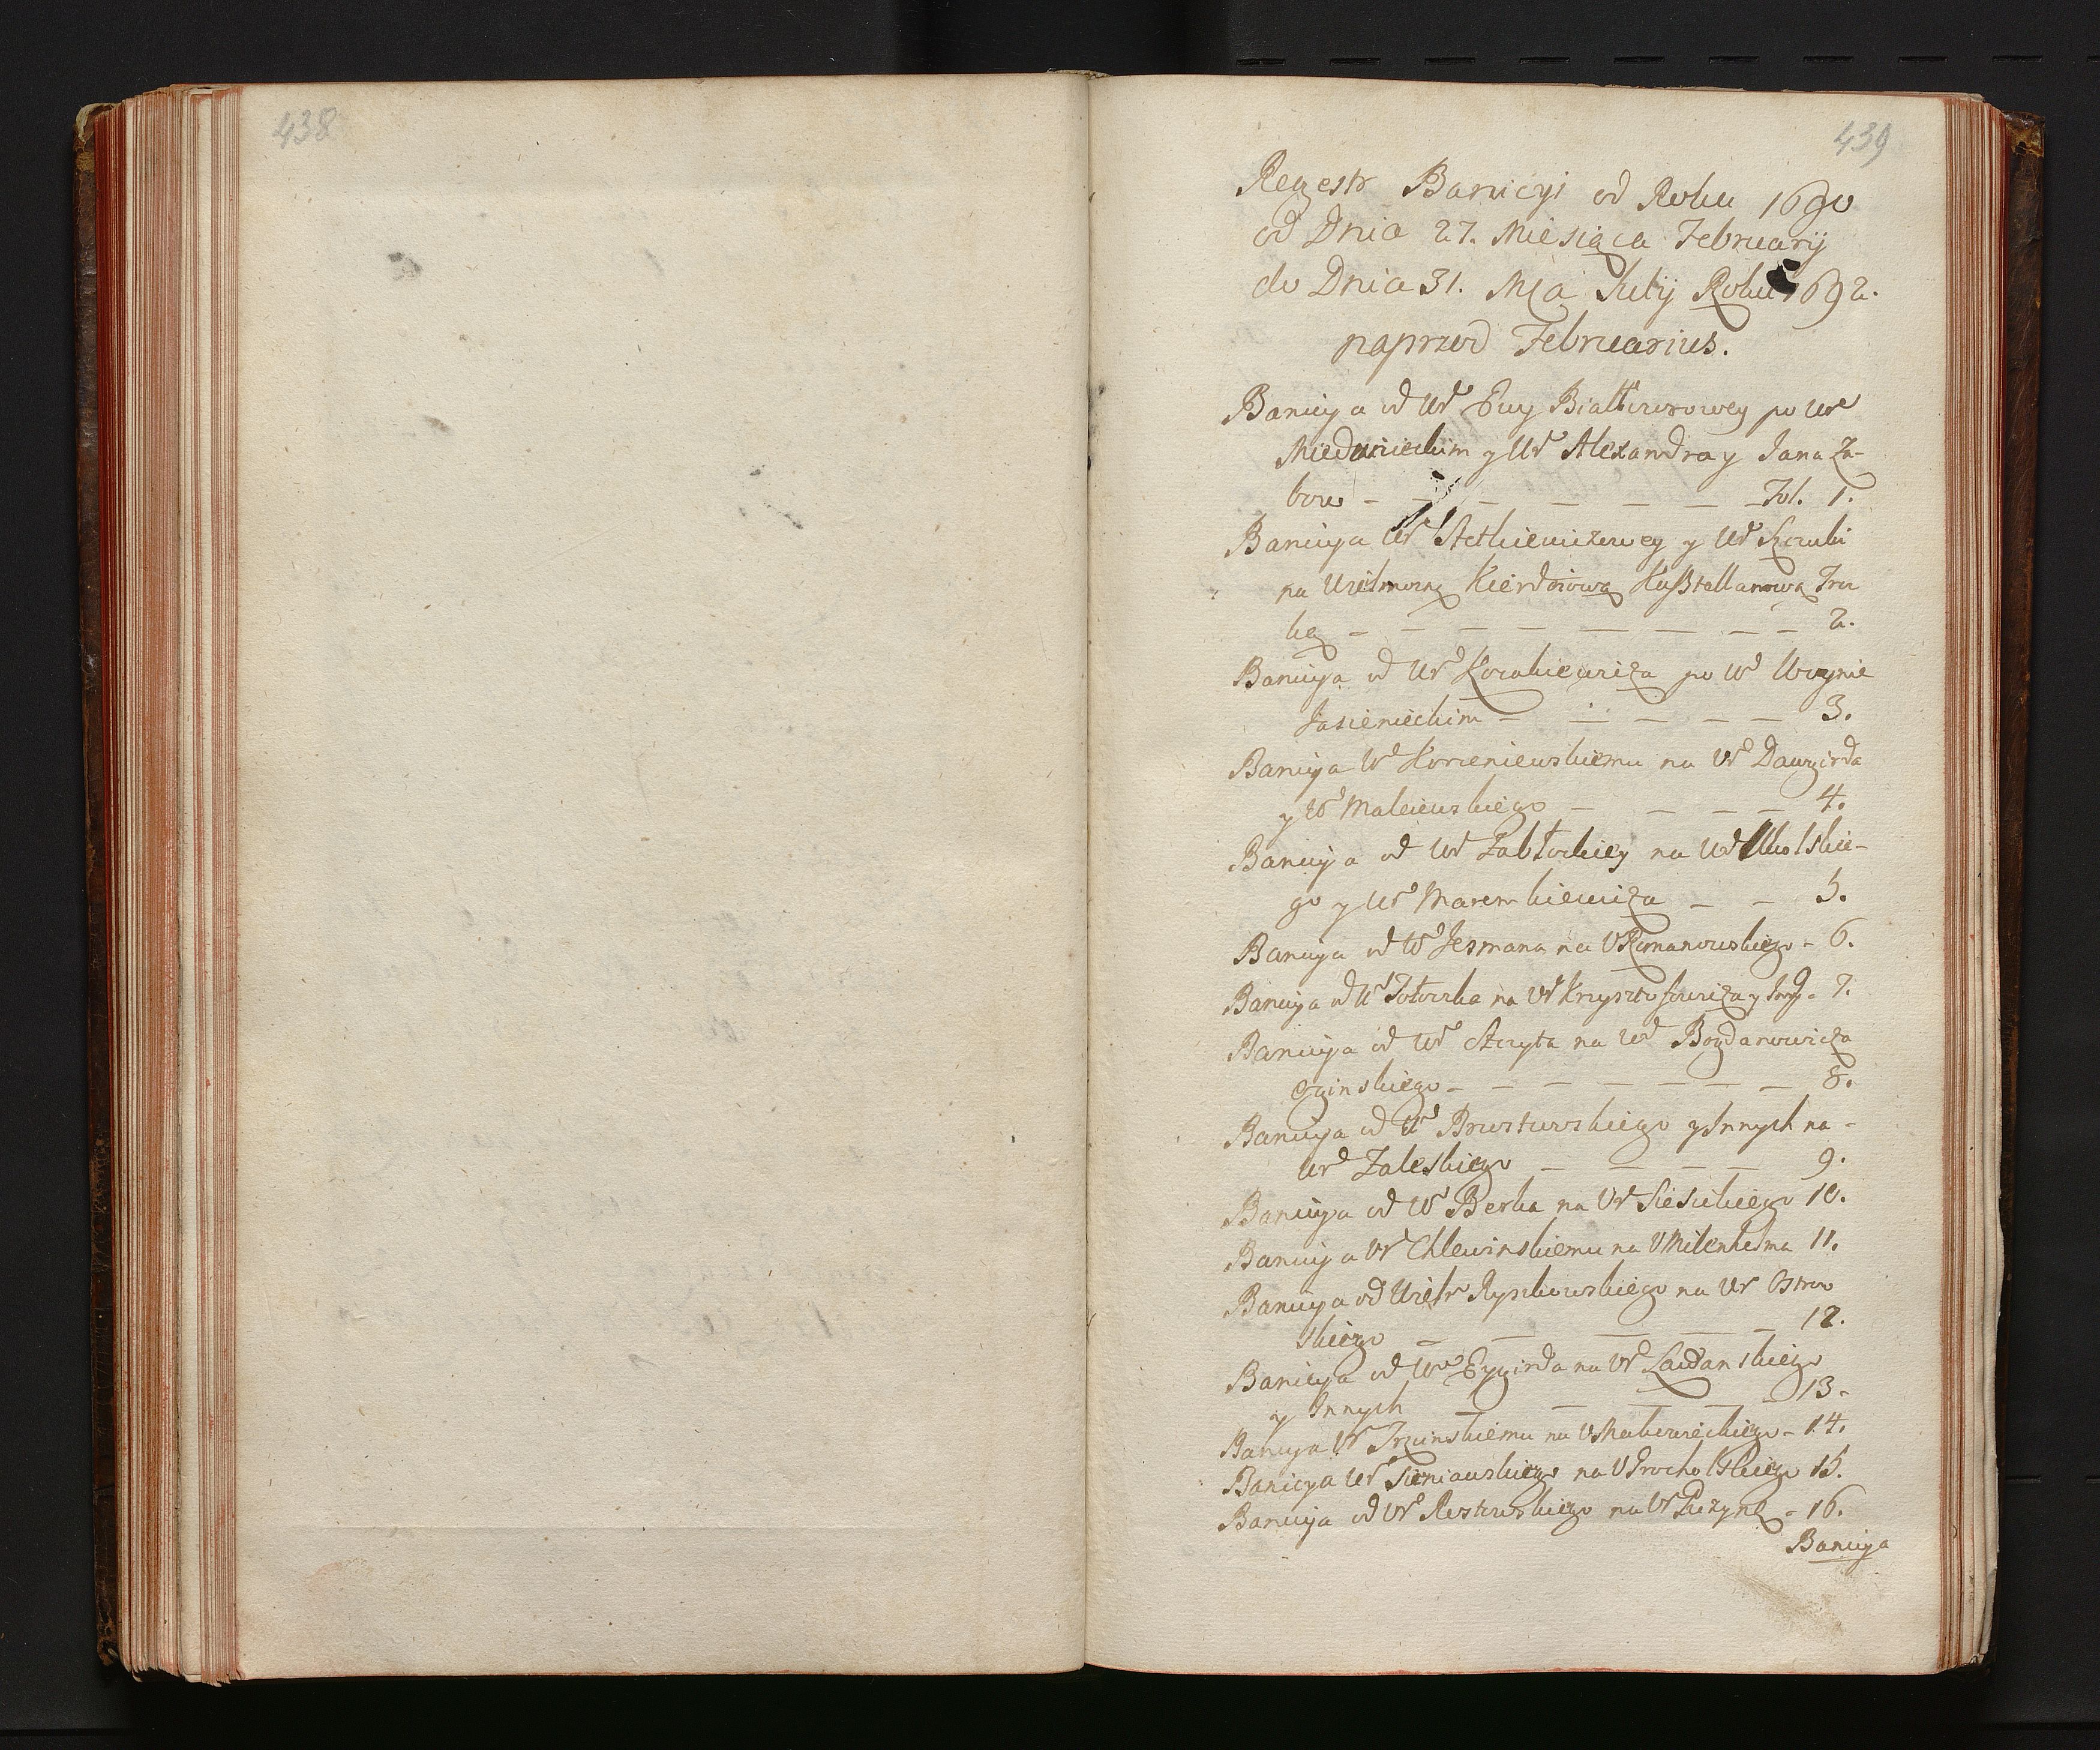 438
439
Regestr Banicyi od Roku 1690
od Dnia 27. Miesiąca Februarij
do Dnia 31. Mca July Roku 1692.
naprzod Februarius.
Banicya od Ur Ewy Białłozorowey po Ur
Miednickim y Ur Alexandra y Jana Za-
bow - - - - - - - Fol. 1.
Banicya Ur Stetkiewiczowey y Ur
na Wielmozną Kierdeiową Kasztellanową Troc
ką - - - - - - - - 2.
Banicya od Ur po Ur Woynie
Jasienieckim - - - - - 3.
Banicya Ur Korzeniewskiemu na Ur Dawgirda
y Ur Malciewskiego - - - - 4.
Banicya od Ur Zabłockiey na Ur Wolskie-
go y Ur Maremkiewicza - - 5.
Banicya od Ur Jesmana na U Romanowskiego - 6.
Banicya od Ur Tołoczka na Ur Krzysztofowicza y Inny - 7.
Banicya od Ur Aczyta na Ur Bogdanowicza
Oginskiego - - - - - - - 8.
Banicya od Ur Brzostowskiego y Innych na -
Ur Zaleskiego - - - - 9.
Banicya od Ur Berka na Ur Siesickiego 10.
Banicya Ur Chlewinskiemu na U Mitenhelma 11.
Banicya od Wiel Ryszkowskiego na Ur Ostrow
skiego - - - - 12.
Banicya od Ur Ezgirda na Ur Laudanskiego
y Innych - - - - 13.
Banicya Ur Trzcinskiemu na U Makowieckiego - 14.
Banicya Ur Sieniawskiego na U Grocholskiego 15.
Banicya od Ur Rostowskiego na Ur Puzynę - 16.
Banicya